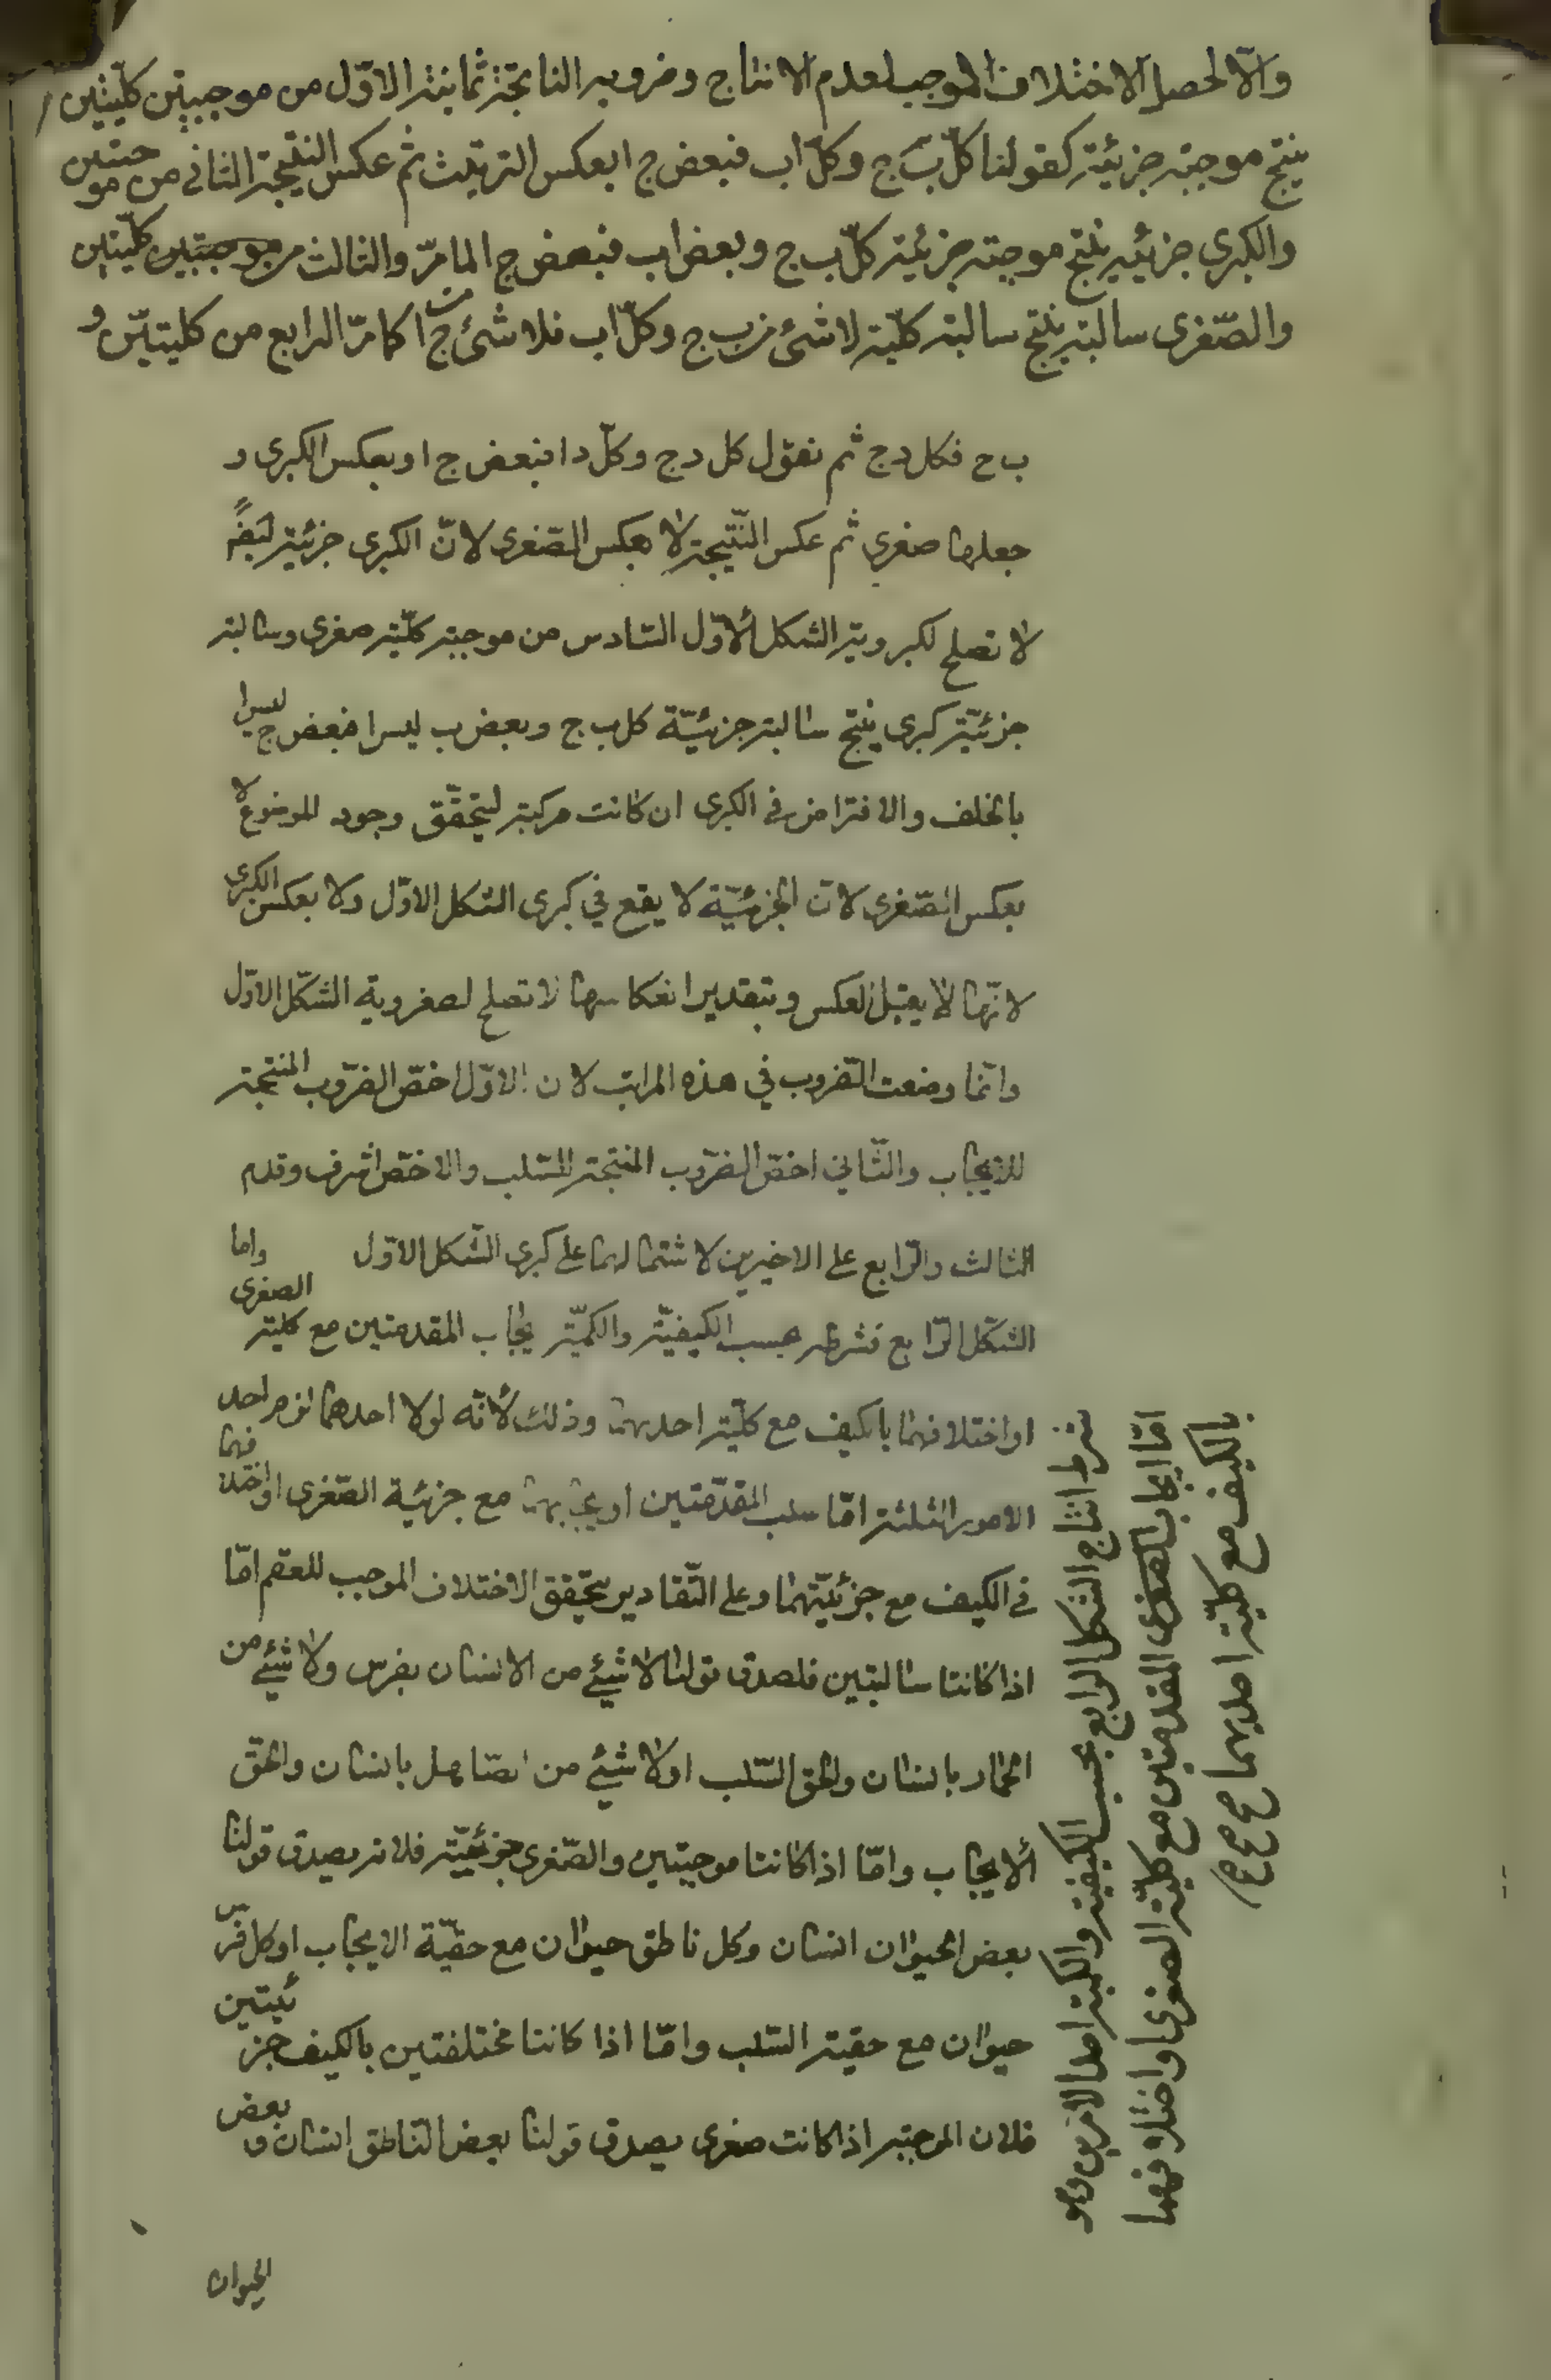 والّا لحصل الاختلاف الموجب لعدم الانتاج وضروبه الناتجة ثمانية الاوّل من موجبتين كليّتين
ينتج موجبة جزئية كقولنا كلّ ب ج وكلّ اب فبعض ج ا بعكس الترتيب ثم عكس النتيجة الثانى من موجبتين
والكبرى جزئية ينتج موجبة جزئية كلّ ب ج وبعض اب فبعض ج ا لما مرّ والثالث من كليّتين
والصّغرى سالبة ينتج سالبة كليّة لا شئ من ب ج وكلّ اب فلا شئ من ج ا كما مرّ الرابع من كليتيّن و
ب ح فكل د ج ثم نقول كل د ج وكلّ د ا فبعض ج ا وبعكس الكبرى و
جعلها صغرى ثم عكس النّتيجة لا بعكس الصّغرى لانّ الكبرى جزئية
لا تصلح لكبروية الشكل الاوّل السّادس من موجبة كليّة صغرى وسالبة
جزئيّة كبرى ينتج سالبة جزئيّة كل ب ج وبعض ب ليس ا فبعض ج ليس ا
بالخلف والافتراض فى الكبرى ان كانت مركبة ليتحقّق وجود الموضوع لا
بعكس الصّغرى لانّ الجزئيّة لا يقع في كبرى الشكل الاوّل ولا بعكس الكبرى
لانّها لا يقبل العكس وبتقدير انعكاسها لا تصلح لصغروية الشكّل الاوّل
وانّما وضعت الضّروب في هذه المراتب لان الاوّل اخصّ الضّروب المنتجة
للايجاب والثّاني اخصّ الضّروب المنتجة للسّلب والاخصّ اشرف وقدم
الثالث والرّابع على الاخيرين لاشتمالهما على كبرى الشّكل الاوّل واما
الشّكل الرّابع فشرطه بحسب الكيفيّة والكميّة ايجاب المقدمتين مع كلية الصغرى
او اختلافهما بالكيف مع كليّة احديهما وذلك لأنّه لولا احدهما لزم احد
الامور الثلثة امّا سلب المقدّمتين او ايجابهما مع جزئية الصّغرى او اختلافهما
في الكيف مع جزئيّتهما وعلى التّقادير يتحقق الاختلاف الموجب للعقم امّا
اذا كانتا سالبتين فلصدق قولنا لا شيئ من الانسان بفرس ولا شيئ من
الحمار بانسان والحق السّلب او لا شيئ من الصّاهل بانسان والحقّ
ألايجاب وامّا اذا كانتا موجبتين والصّغرى جزئيّة فلانه يصدق قولنا
بعض الحيوان انسان وكل ناطق حيوان مع حقيّة الايجاب او كل فرس
حيوان مع حقية السّلب وامّا اذا كانتا مختلفتين بالكيف جزئيتين
فلان الموجبة اذا كانت صغرى يصدق قولنا بعض النّاطق انسان و بعض
الحيوان
شرط انتاج الشكل الرابع بحسب الكيفية والكمية احد الامرين وهو
امّا ايجاب المقدمتين مع كليّة الصغرى او اختلافهما
بالكيف مع كليّة احديهما